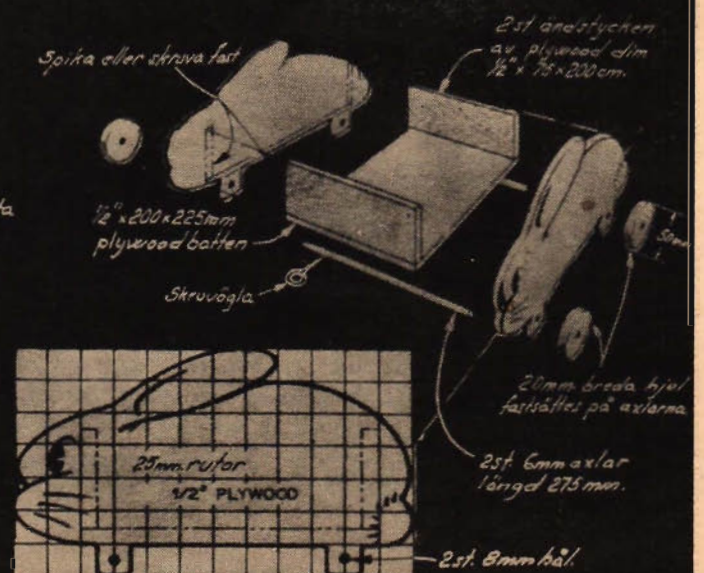 Spika eller skruva fast
2 st ändstycken
av plywood dim
½" x 75 x 200 cm.
ta
½" x 200 x 225 mm
plywood botten
Skruvögla
50 mm
20 mm. breda hjul
fastsättes på axlarna
2 st. 6 mm axlar
längd 275 mm.
25 mm. rutor
1/2" PLYWOOD
2 st. 8 mm hål.